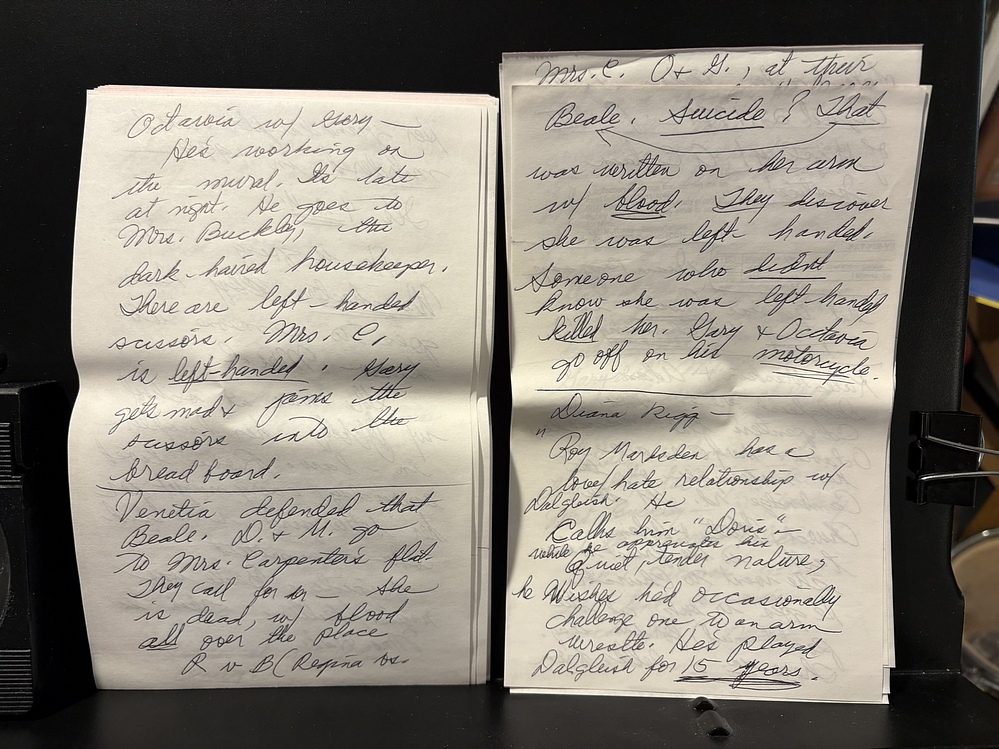 Octavia w/ Gary —
He's working on
the mural. It's late
at night. He goes to
Mrs. Buckley, the
dark-haired housekeeper.
There are left-handed
scissors. Mrs. C.
is left-handed. Gary
gets mad & jams the
scissors into the
bread board.
Venetia defended that
Beale. D. & M. go
to Mrs. Carpenter's flat
They call for her — she
is dead, w/ blood
all over the place
R v B (Regina vs.
Mrs. C. O & G., at their
Beale. Suicide? That
was written on her arm
w/ blood. They discover
she was left handed.
Someone who didnt
know she was left-handed
killed her. Gary & Octavia
go off on his motorcycle.
Diana Rigg —
"Roy Marsden has a
love/hate relationship w/
Dalgliesh. He
Calls him "Doris" —
while he appreciates his
quiet, tender nature,
he Wishes he'd occasionally
challenge one to an arm
wrestle. He's played
Dalgliesh for 15 years.